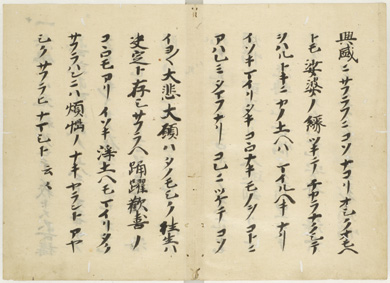 興盛ニサフラフニコソナコリオシクオモヘ
トモ娑婆ノ縁ツキテチカラナクシテ
ヲハルトキニカノ土ヘハマイルヘキナリ
イソキマイリタキコヽロナキモノヲコトニ
アハレミタマフナリコレニツケテコソ
イヨ〱大悲大願ハタノモシク往生ハ
決定ト存シサフラヘ踊躍歓喜ノ
コヽロモアリイソキ浄土ヘモマイリタク
サフラハンニハ煩悩ノナキヤラントアヤ
シクサフラヒナマシト云々